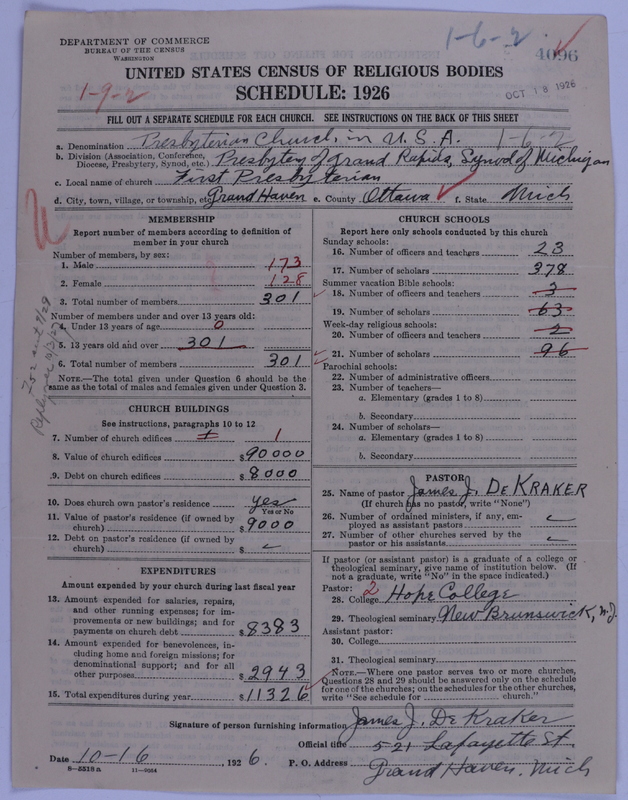 DEPARTMENT OF COMMERCE
BUREAU OF THE CENSUS
WASHINGTON
1-6-2
4096
1-9-2
UNITED STATES CENSUS OF RELIGIOUS BODIES
SCHEDULE: 1926
OCT 18 1926
FILL OUT A SEPARATE SCHEDULE FOR EACH CHURCH. SEE INSTRUCTIONS ON THE BACK OF THIS SHEET
a. Denomination Presbyterian Church in U.S.A. 1-6-2
b. Division (Association, Conference, Diocese, Presbytery, Synod, etc.) Presbytery of Grand Rapids, Synod of Michigan
c. Local name of church First Presbyterian
d. City, town, village, or township, etc. Grand Haven e. County Ottawa f. State Mich
MEMBERSHIP
Report number of members according to definition of
member in your church
Number of members, by sex:
1. Male 173
2. Female 128
3. Total number of members 301
Number of members under and over 13 years old:
4. Under 13 years of age 0
5. 13 years old and over 301
6. Total number of members 301
NOTE.—The total given under Question 6 should be the
same as the total of males and females given under Question 3.
CHURCH BUILDINGS
See instructions, paragraphs 10 to 12
7. Number of church edifices 1 1
8. Value of church edifices $90000
9. Debt on church edifices $8000
10. Does church own pastor's residence yes
Yes or No
11. Value of pastor's residence (if owned by
church) $9000
12. Debt on pastor's residence (if owned by
church) $
EXPENDITURES
Amount expended by your church during last fiscal year
13. Amount expended for salaries, repairs,
and other running expenses; for im-
provements or new buildings; and for
payments on church debt $8383
14. Amount expended for benevolences, in-
cluding home and foreign missions; for
denominational support; and for all
other purposes $2943
15. Total expenditures during year $11326
CHURCH SCHOOLS
Report here only schools conducted by this church
Sunday schools:
16. Number of officers and teachers 23
17. Number of scholars 378
Summer vacation Bible schools:
18. Number of officers and teachers 3
19. Number of scholars 63
Week-day religious schools:
20. Number of officers and teachers 2
21. Number of scholars 96
Parochial schools:
22. Number of administrative officers
23. Number of teachers—
a. Elementary (grades 1 to 8)
b. Secondary
24. Number of scholars—
a. Elementary (grades 1 to 8)
b. Secondary
PASTOR
25. Name of pastor James J. DeKraker
(If church has no pastor, write "None")
26. Number of ordained ministers, if any, em-
ployed as assistant pastors
27. Number of other churches served by the
pastor or his assistants
If pastor (or assistant pastor) is a graduate of a college or
theological seminary, give name of institution below. (If
not a graduate, write "No" in the space indicated.)
Pastor: 2
28. College Hope College
29. Theological seminary New Brunswick, N.J.
Assistant pastor:
30. College
31. Theological seminary
NOTE.—Where one pastor serves two or more churches,
Questions 28 and 29 should be answered only on the schedule
for one of the churches; on the schedules for the other churches,
write "See schedule for church."
Signature of person furnishing information James J. DeKraker
Official title 521 Lafayette St.
Date 10-16, 1926. P. O. Address Grand Haven, Mich
8—5518 a 11—9064